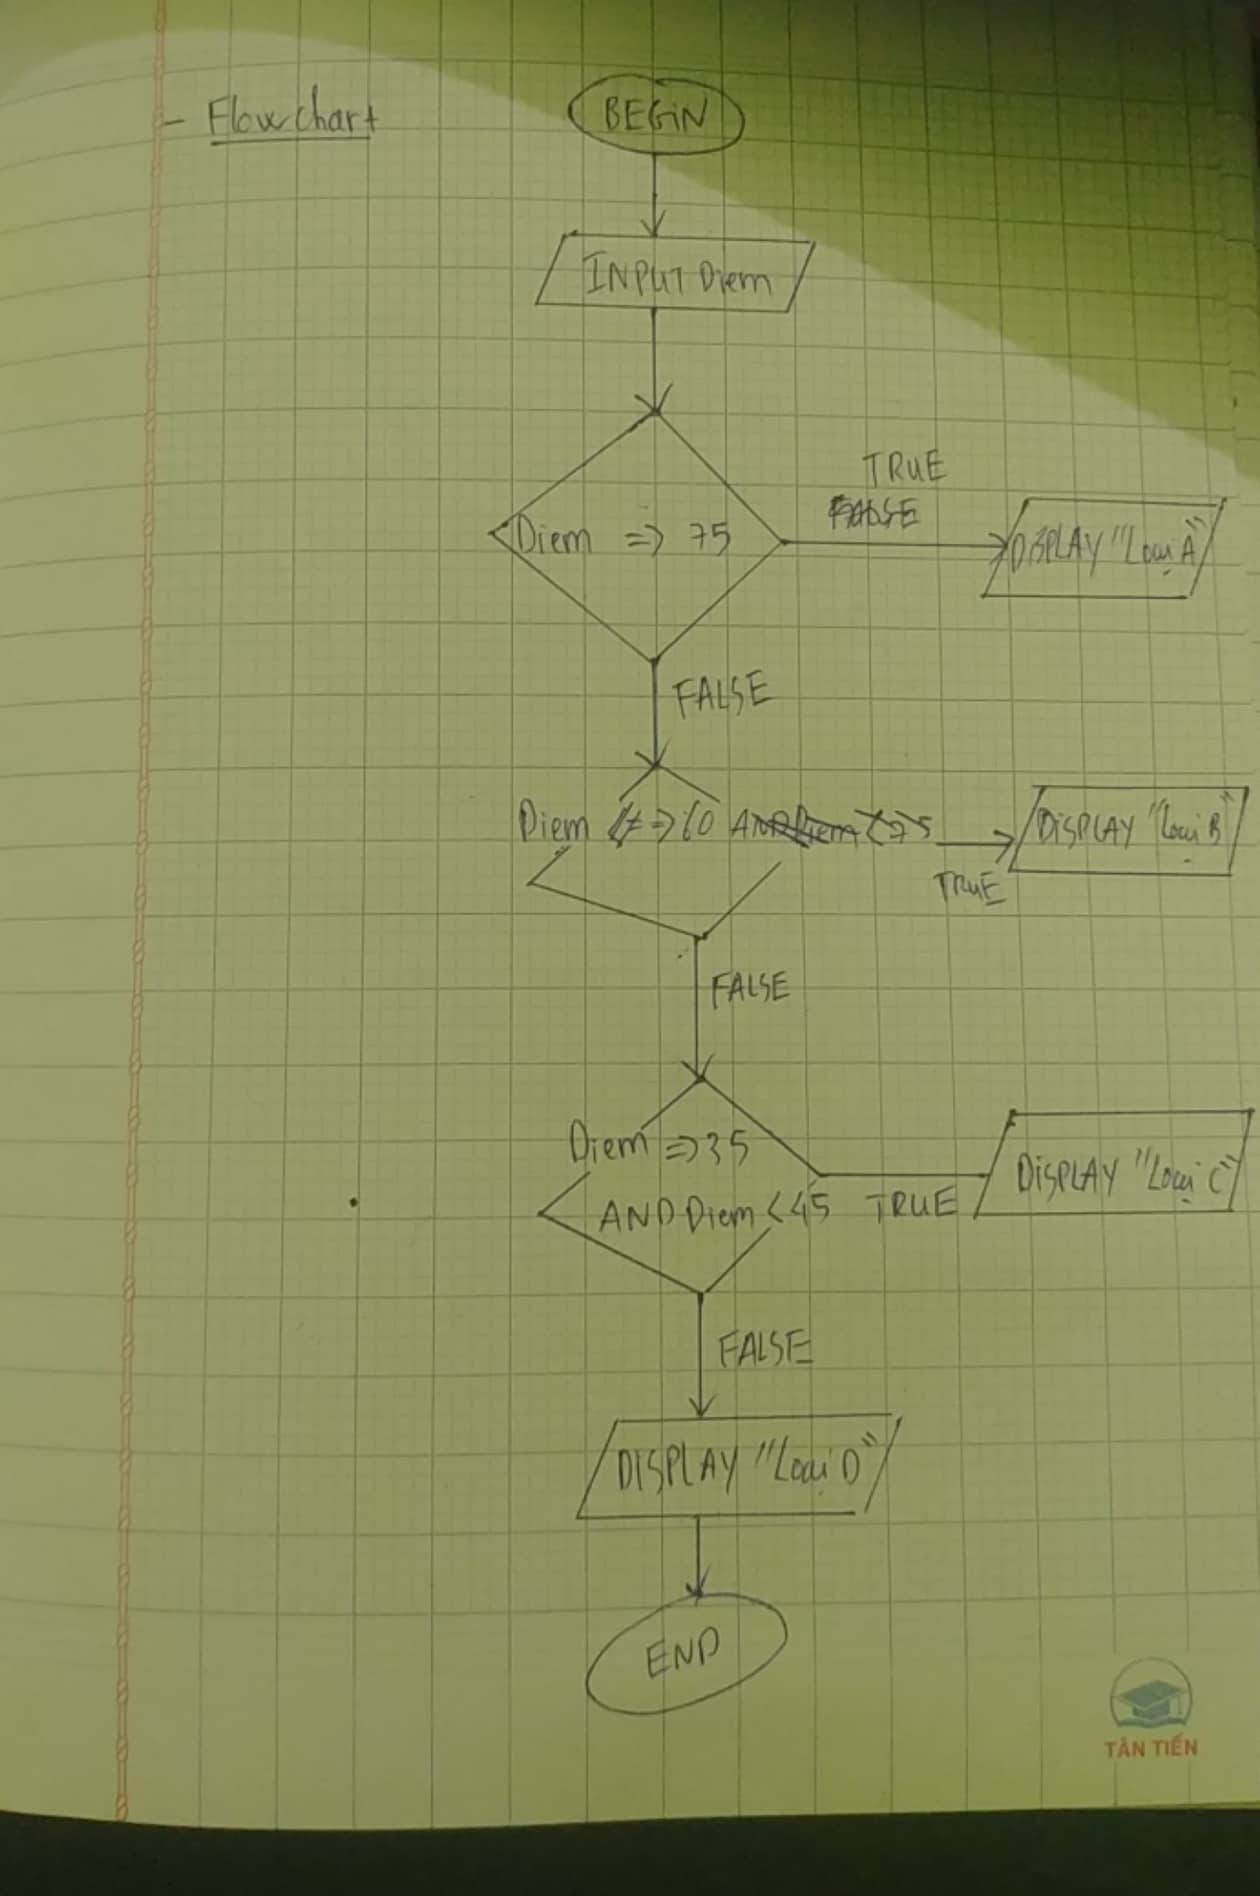 - Flow chart
BEGIN
INPUT Diem
Diem => 75
TRUE
FALSE
DISPLAY "Loại A"
FALSE
Diem => 60 AND Diem < 75
TRUE
DISPLAY "Loại B"
FALSE
Diem => 35
AND Diem < 45
TRUE
DISPLAY "Loại C"
FALSE
DISPLAY "Loại D"
END
TÂN TIẾN